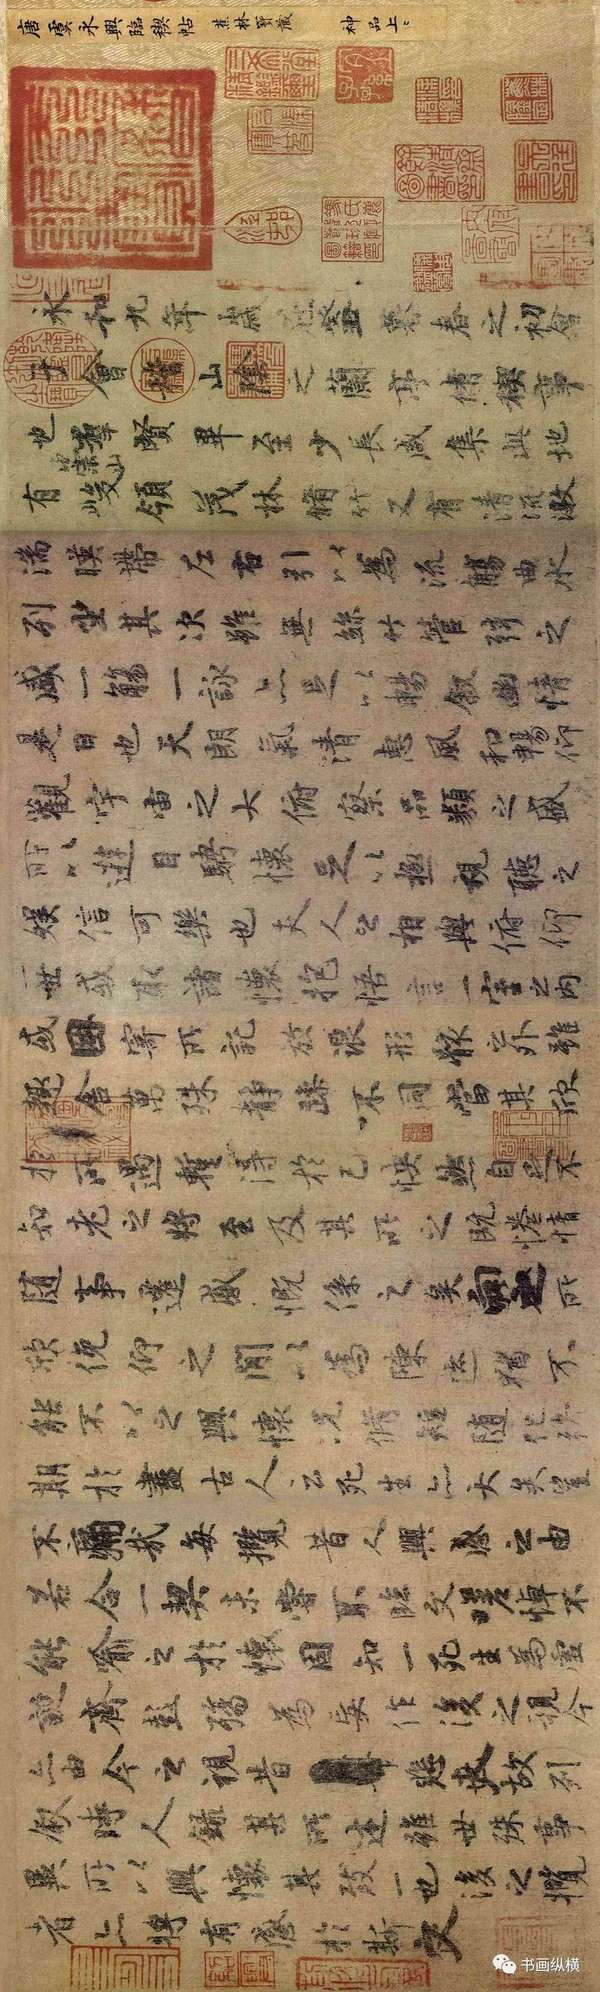 唐虞永興臨稧帖 蕉林寶藏 神品上上
永和九年歲在癸丑暮春之初會
于會稽山陰之蘭亭脩稧事
也羣賢畢至少長咸集此地
有崇山峻領茂林脩竹又有清流激
湍暎帶左右引以為流觴曲水
列坐其次雖無絲竹管弦之
盛一觴一詠亦足以暢敘幽情
是日也天朗氣清惠風和暢仰
觀宇宙之大俯察品類之盛
所以遊目騁懷足以極視聽之
娛信可樂也夫人之相與俯仰
一世或取諸懷抱悟言一室之內
或因寄所託放浪形骸之外雖
趣舍萬殊靜躁不同當其欣
於所遇暫得於己怏然自足不
知老之將至及其所之既惓情
隨事遷感慨係之矣向之所
欣俛仰之閒以為陳迹猶不
能不以之興懷況脩短隨化終
期於盡古人云死生亦大矣豈
不痛哉每攬昔人興感之由
若合一契未嘗不臨文嗟悼不
能喻之於懷固知一死生為虛
誕齊彭殤為妄作後之視今
亦由今之視昔悲夫故列
敘時人錄其所述雖世殊事
異所以興懷其致一也後之攬
者亦將有感於斯文
书画纵横